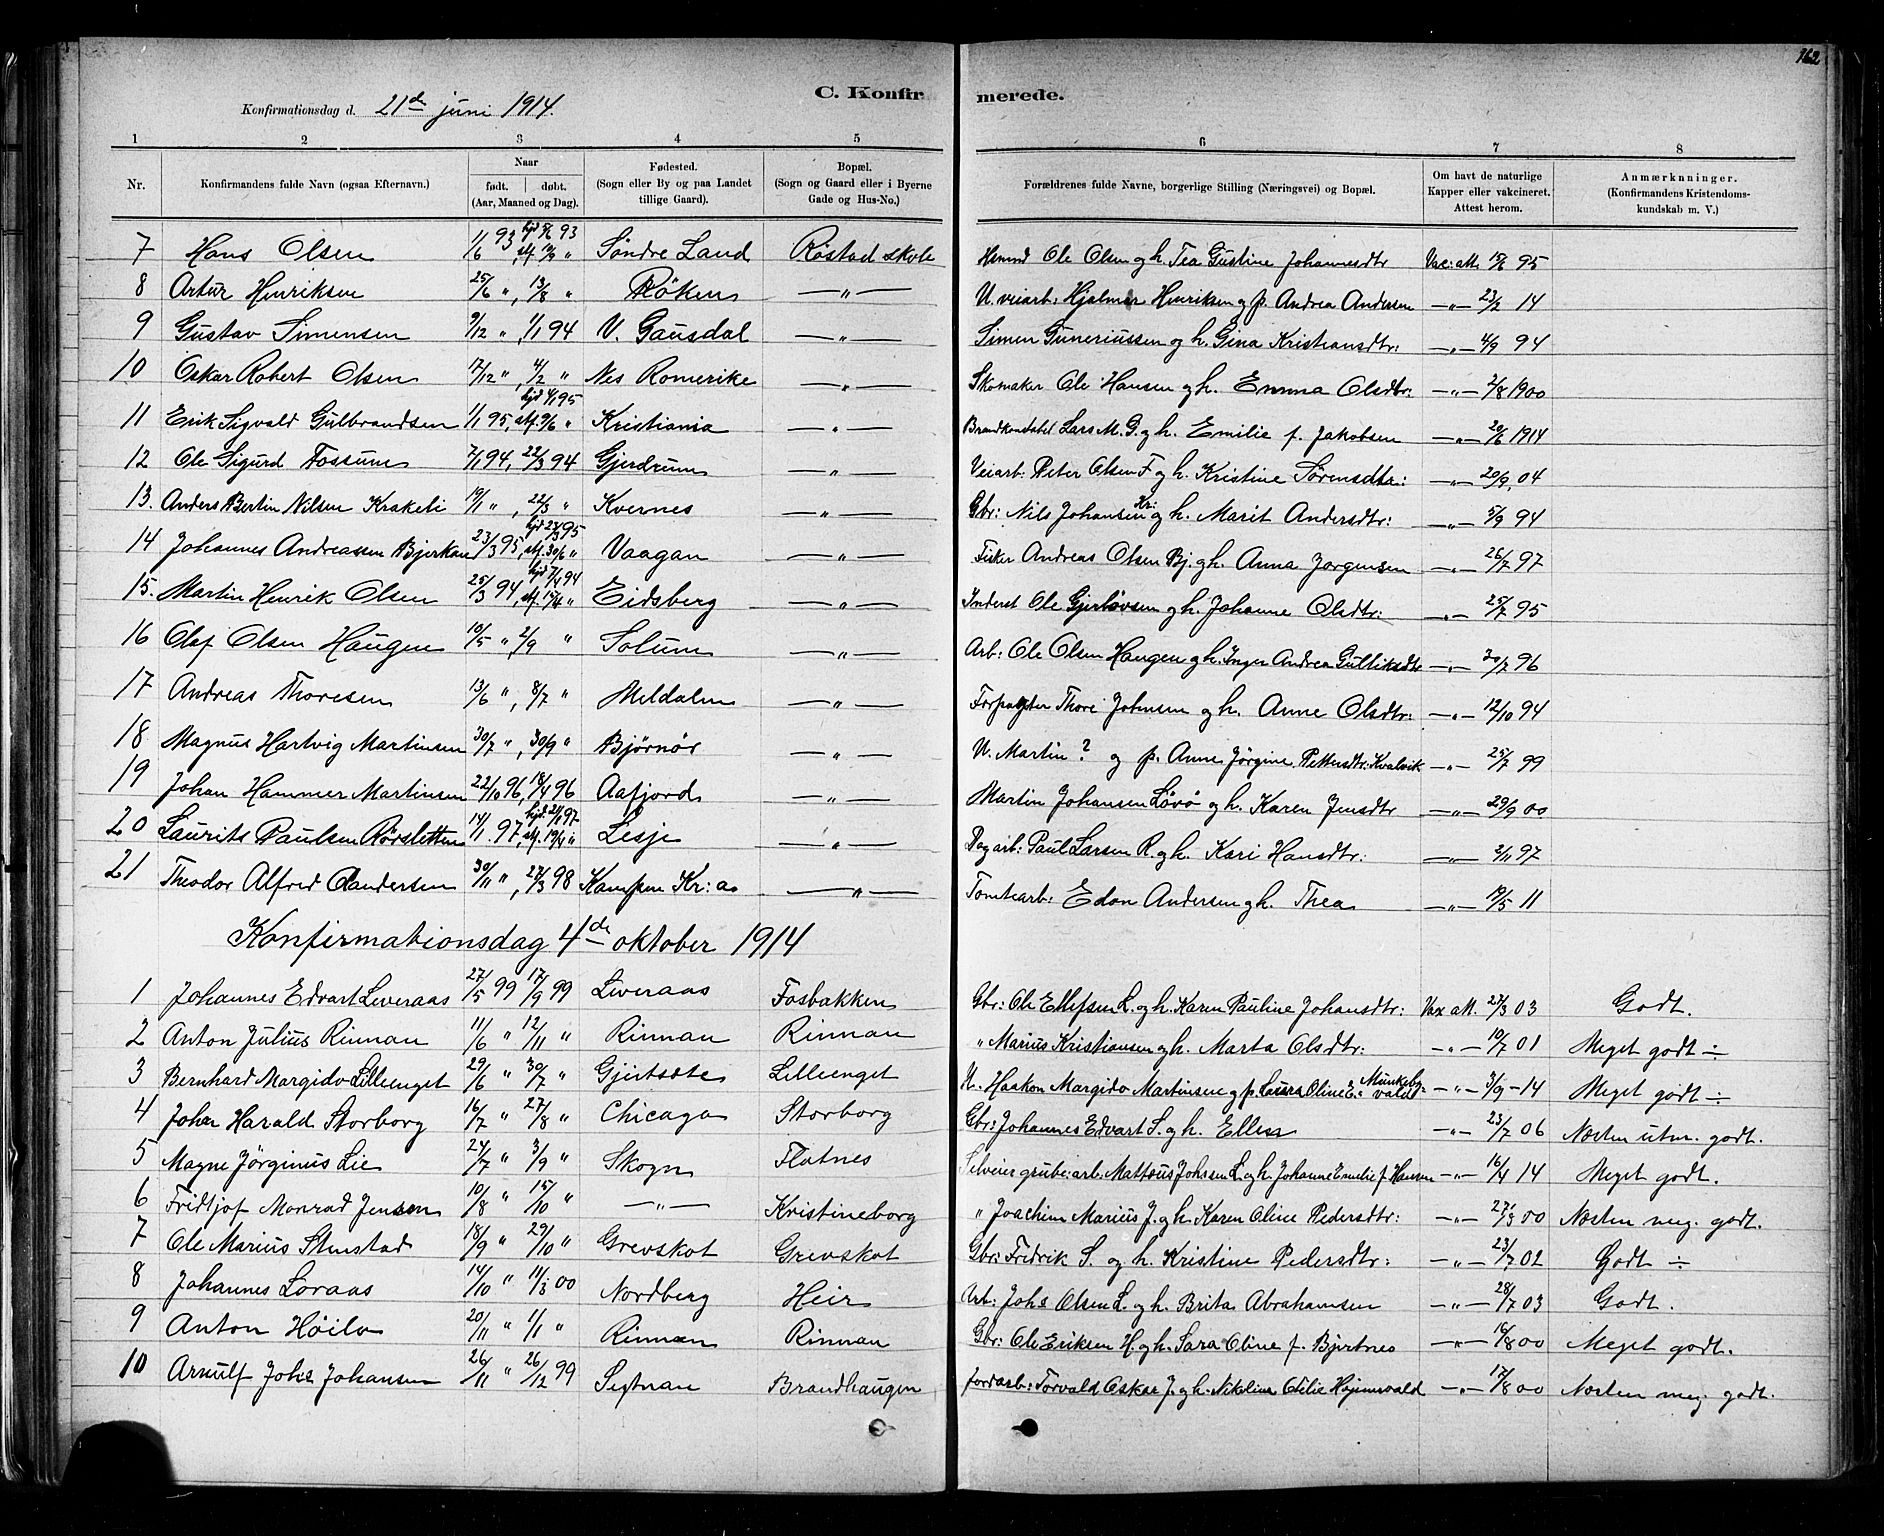 162
C. Konfirmerede.
Konfirmationsdag d. 21de juni 1914.
1 2 3 4 5 6 7 8
Nr. Konfirmandens fulde Navn (ogsaa Efternavn.) Naar født. døbt. (Aar, Maaned og Dag). Fødested. (Sogn eller By og paa Landet tillige Gaard). Bopæl. (Sogn og Gaard eller i Byerne Gade og Hus-No.) Forældrenes fulde Navne, borgerlige Stilling (Næringsvei) og Bopæl. Om havt de naturlige Kapper eller vakcineret. Attest herom. Anmærkninger. (Konfirmandens Kristendomskundskab m. V.)
7 Hans Olsen 1/6 93 Søndre Land Røstad skole Hsmnd Ole Olsen og h. Tea Gustine Johannesdtr Vac: att. 95
8 Artur Henriksen 25/6 ", 13/8 " Røken —"— U. veiarb: Hjalmar Henriksen og p. Andrea Andersen —"— 23/2 14
9 Gustav Simensen 9/12 ", 1/1 94 V. Gausdal —"— Simen Guneriussen og h. Gina Kristiansdtr: —"— 4/9 94
10 Oskar Robert Olsen 17/12 ", 4/2 " Nes Romerike —"— Skomaker Ole Hansen og h. Emma Olsdtr: —"— 2/8 1900
11 Erik Sigvald Gulbrandsen 1/1 95, Kristiania —"— Brandkonstabel Lars M. G. og h. Emilie f. Jakobsen —"— 20/6 1914
12 Ole Sigurd Fossum 7/1 94, 22/3 94 Gjerdrum —"— Veiarb: Peter Olsen F og h. Kristine Sørensdtr: —"— 20/9, 04
13. Anders Bertin Nilsen Krakeli 19/1 ", 22/3 " Kvernes —"— Gbr: Nils Johansen Kr: og h. Marit Andersdtr: —"— 5/9 94
14 Johannes Andreassen Bjerkan 23/3 95, hjd 23/3 95 stf. 30/6 " Vaagan —"— Fisker Andreas Olsen Bj. og h. Anna Jørgensen —"— 26/7 97
15. Martin Henrik Olsen 25/3 94, hjd 7/4 94 stf. 15/4 " Eidsberg —"— Inderst Ole Gjerløvsen og h. Johanne Olsdtr: —"— 25/7 95
16 Olaf Olsen Haugen 10/5 ", 2/9 " Solum —"— Arb: Ole Olsen Haugen og h. Inger Andrea Gulliksdtr —"— 30/7 96
17 Andreas Thoresen 13/6 ", 8/7 " Meldalen —"— Forpagter Thore Johnsen og h. Anne Olsdtr: —"— 12/10 94
18 Magnus Hartvig Martinsen 30/7 ", 30/9 " Bjørnør —"— U. Martin ? og p. Anne Jörgine Pettersdtr. Kvalvik —"— 25/7 99
19 Johan Hammer Martinsen 22/10 96, 18/4 96 Aafjord —"— Martin Johansen Løvø og h. Karen Jensdtr —"— 29/9 00
20 Laurits Paulsen Rørsletten 14/1. 97, hjd. 21/1 97 stf. 19/4 " Lesje —"— Dagarb: Paul Larsen R. og h. Kari Hansdtr: —"— 2/11 97
21 Theodor Alfred Andersen 30/11 ", 27/3 98 Kampen Kr:a —"— Tomtearb: Edon Andersen og h. Thea —"— 19/5 11
Konfirmationsdag 4de oktober 1914
1 Johannes Edvart Leveraas 27/5 99 17/9 99 Leveraas Fosbakken Gbr: Ole Ellefsen L. og h. Karen Pauline Johansdtr: Vax att. 27/3 03 Godt.
2 Anton Julius Rinnan 11/6 " 12/11 " Rinnan Rinnan " Marius Kristiansen og h. Marta Olsdtr: —"— 10/7 01 Meget godt ÷
3 Bernhard Margido Lilleenget 29/6 " 30/7 " Gjertsdte Lilleenget U. Haakon Margido Martinsen og p. Laura Oline E. Munkebyvald —"— 3/9 – 14 Meget godt ÷
4 Johan Harald Storborg 16/7 " 27/8 " Chicago Storborg Gbr: Johannes Edvart S. og h. Ellen —"— 23/7 06 Næsten utm. godt.
5 Magne Jörginus Lie 24/7 " 3/9 " Skogn Flatnes Selveier grubearb. Mattæus Johsen L. og h. Johanne Emelie f. Hansen —"— 16/4 14 Meget godt.
6 Fridtjof Monrad Jensen 10/8 " 15/10 " —"— Kristineborg " Joachim Marius J. og h. Karen Oline Pedersdtr: —"— 27/3 00 Næsten meg. godt.
7 Ole Marius Stenstad 18/9 " 29/10 " Grevskot Grevskot Gbr: Fridrik S. og h. Kristine Pedersdtr: —"— 23/7 02 Godt ÷
8 Johannes Loraas 14/10 " 11/3 00 Nordberg Heir Arb: Johs Olsen L. og h. Brita Abrahamsen —"— 28/7 03 Godt.
9 Anton Høilo 20/11 " 1/1 " Rinnan Rinnan Gbr: Ole Eriksen H. og h. Sara Oline f. Bjertnes —"— 16/8 00 Meget godt.
10 Arnulf Johs Johansen 26/11 " 26/12 99 Segtnan Brandhaugen Jordarb: Torvald Oskar J. og h. Nikoline Otelie Højemsvald —"— 17/8 00 Næsten meg. godt.